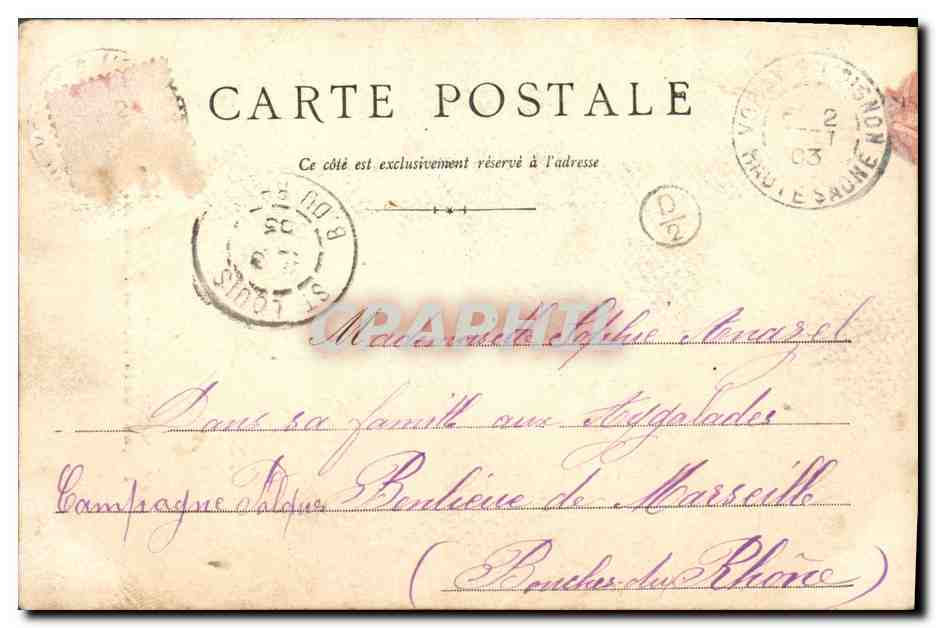 CARTE POSTALE
Ce côté est exclusivement réservé à l'adresse
HAUTE SAONE
2
03
D/2
B. DU
ST LOUIS
CPAPHIL
Mademoiselle Sophie
Dans sa famille aux Aygalades
Campagne Banlieue de Marseille
(Bouches-du-Rhône)